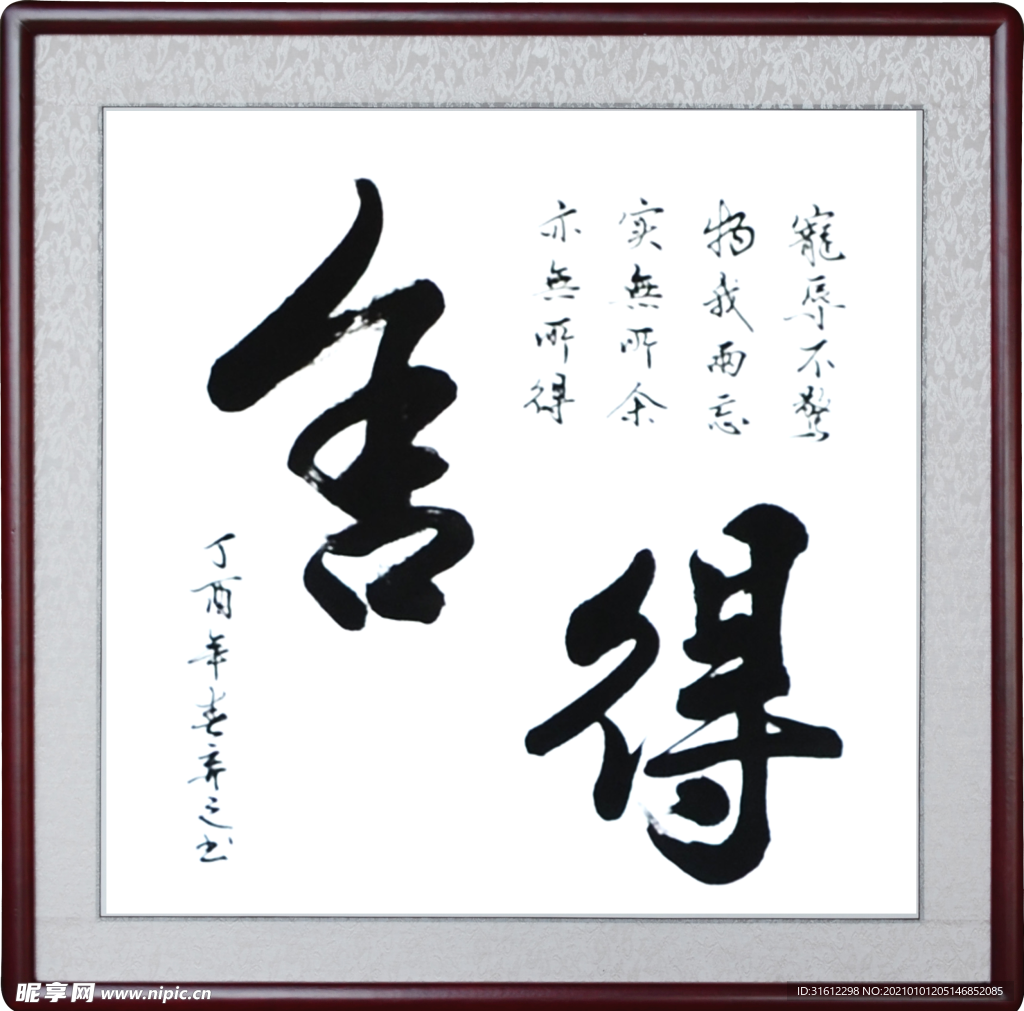 舍得
寵辱不驚
物我兩忘
实無所余
亦無所得
丁酉年春之书
昵享网 www.nipic.cn
ID:31612298 NO:20210101205146852085